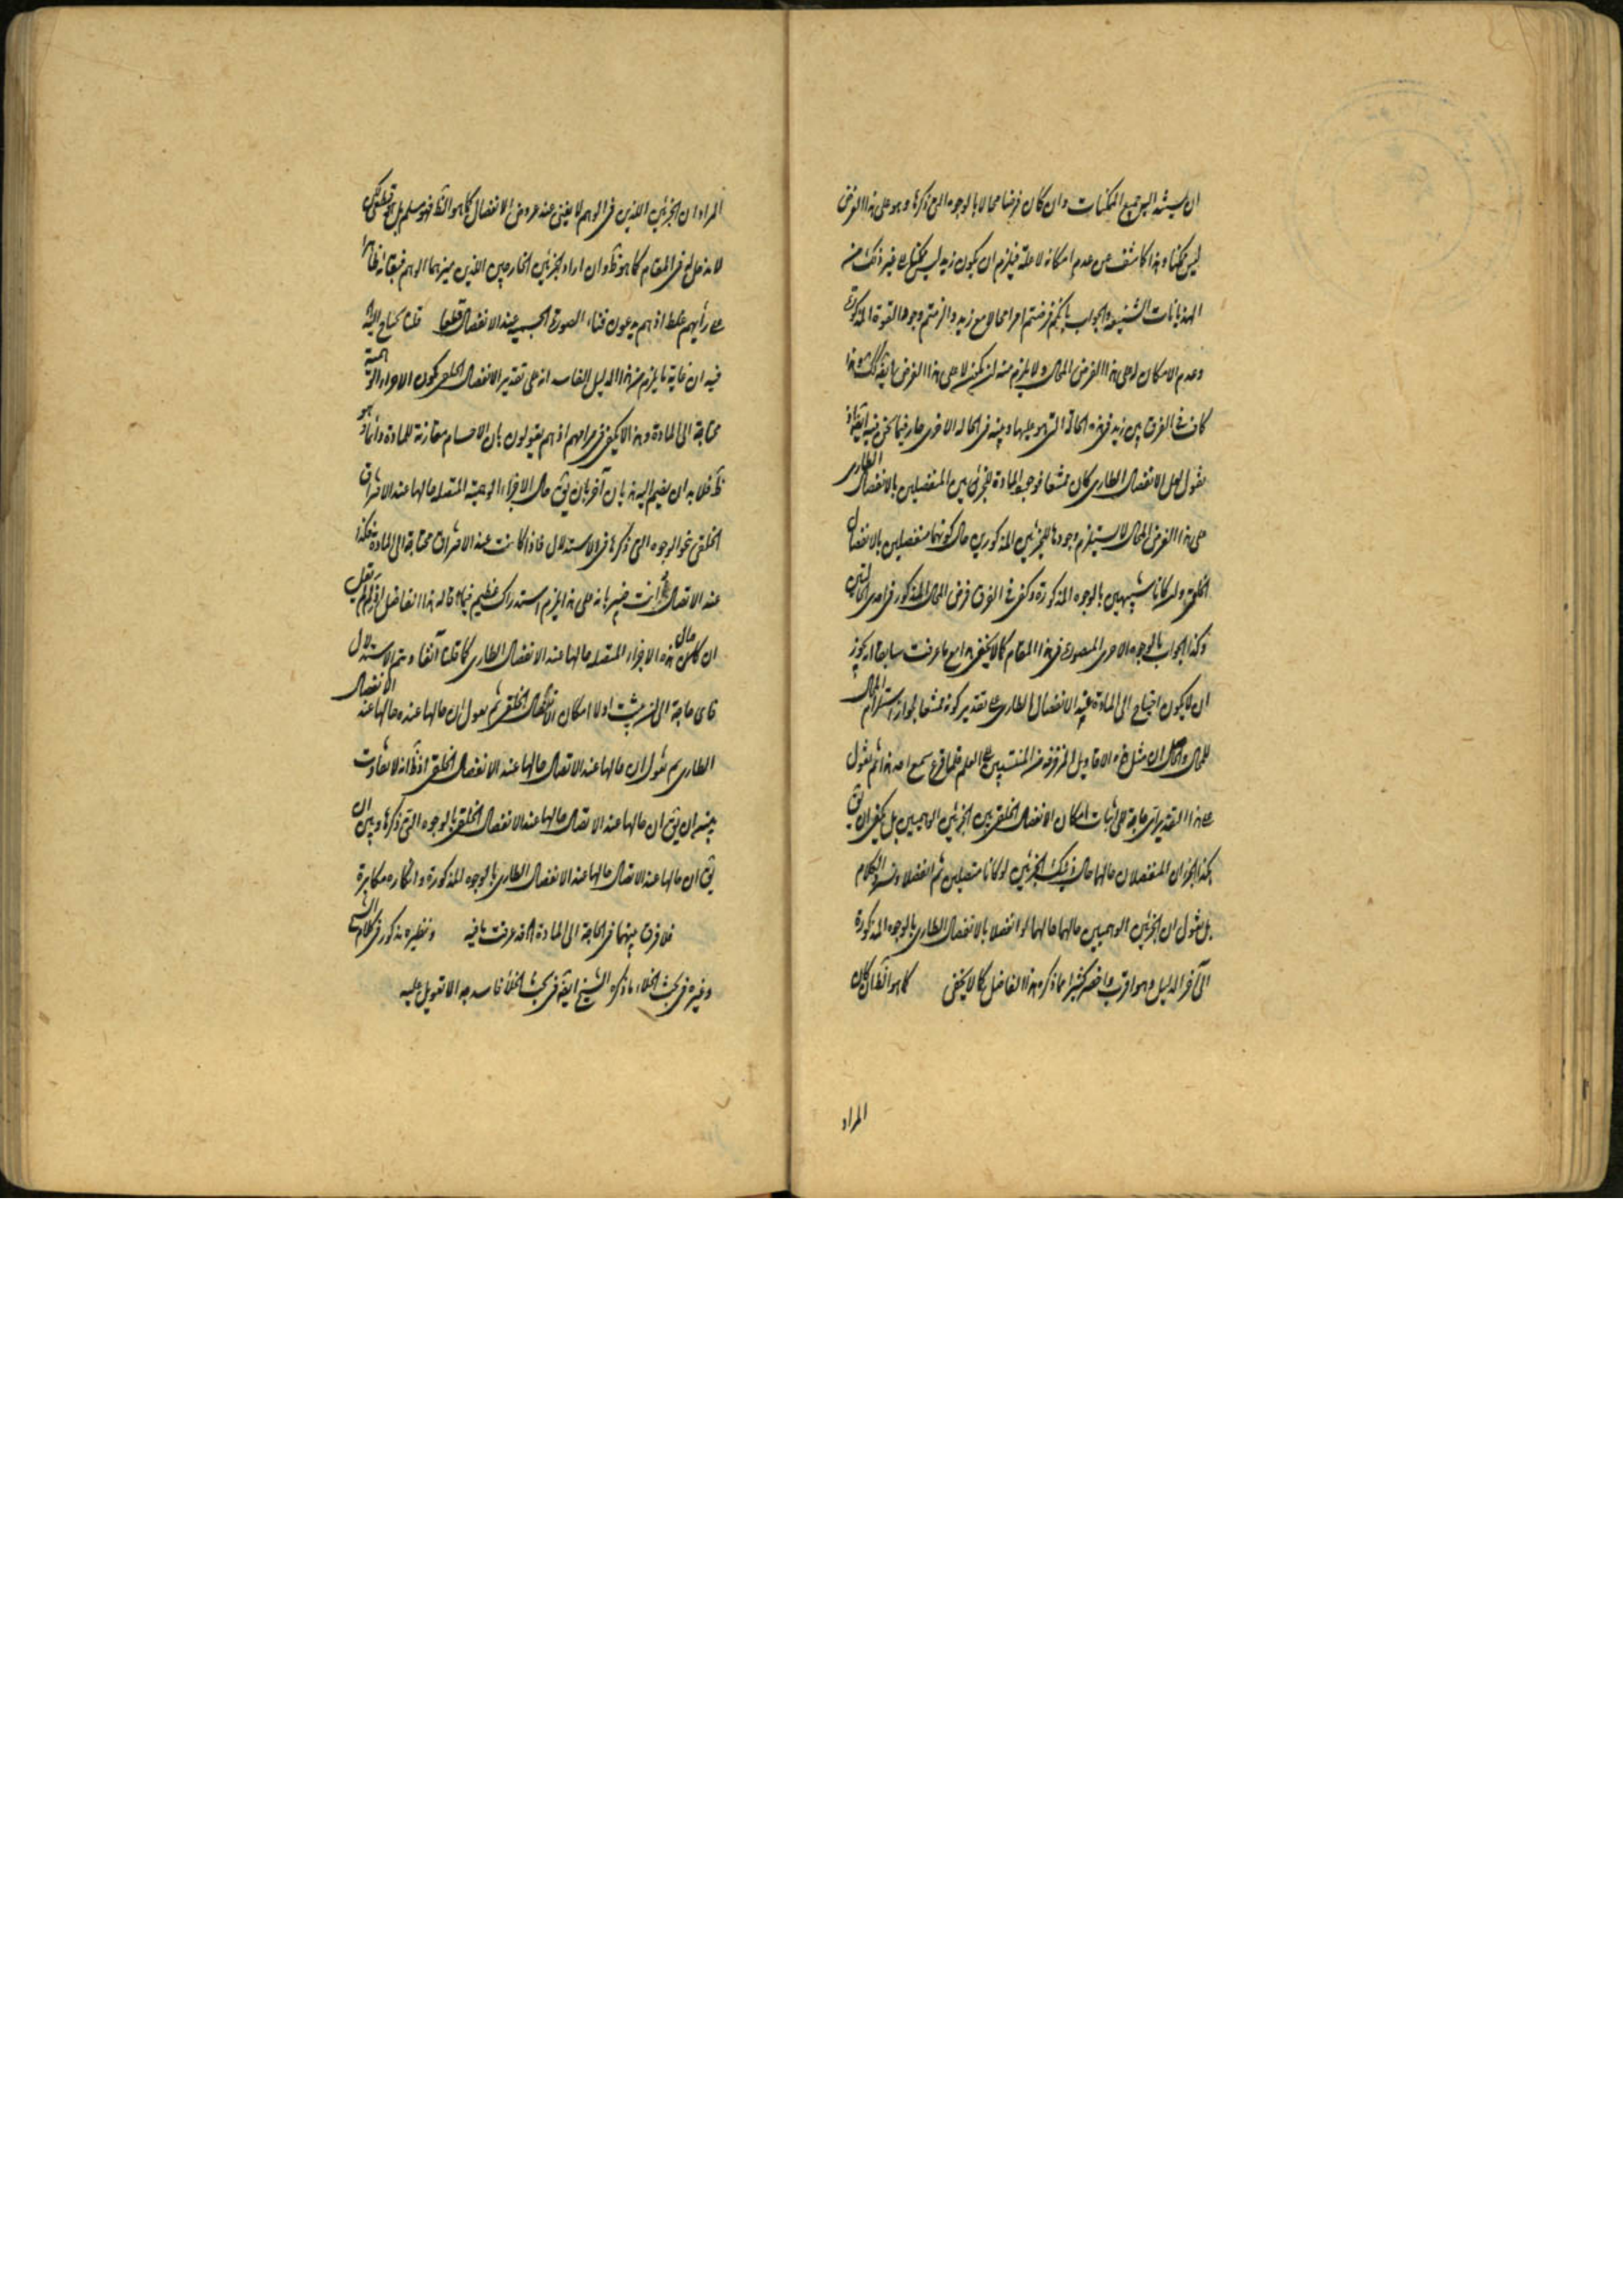 ان يشبه اليس جميع الممكنات وان كان فرضا محالا بالوجوه التى ذكرها وهو على هذا الفرض
ليس ممكنا وهذا كاشف عن عدم امكانه لا علة فيلزم ان يكون زيد ليس ممكنا الى غير ذلك من
الهذيانات الشنيعة والجواب بانكم فرضتم امرا محالا مع زيد والزمتم وجود القوة المذكورة
وعدم الامكان له على هذا الفرض المحال ولا يلزم منه ان يكون لا على هذا الفرض
كاف فى الفرق بين زيد فى هذه الحالة التى هو عليها وبينه فى الحالة الاخرى جار فيما نحن فيه
نقول لعل الانفصال الطارى كان ممتنعا فوجود المادة للجزئين المنفصلين بالانفصال الطارى
على هذا الفرض المحال لا يستلزم وجودها للجزئين المذكورين حال كونهما منفصلين بالانفصال
الخلقى ولو كانا شبيهين بالوجوه المذكورة وكفى فى الفرق فرض المحال المذكور فى احدى الحالتين
وكذا الجواب بالوجوه الاخرى المتصورة فى هذا المقام كما لا يخفى هذا مع ما عرفت سابقا انه يجوز
ان لا يكون احتياج الى المادة عند الانفصال الطارى على تقدير كونه ممتنعا لجواز استلزام المحال
للمحال والحال ان مثل هذه الاقاويل المزخرفة من المنتسبين الى العلم قلما قرع سمع احد هذا ثم نقول
على هذا التقدير اى حاجة الى اثبات امكان الانفصال الخلقى بين الجزئين الوهميين بل يكفى ان يق
هكذا الجزءان المنفصلان حالهما حال ذينك الجزئين لو كانا متصلين ثم انفصلا ونسوق الكلام
بل نقول ان الجزئين الوهميين حالهما حالهما لو انفصلا بالانفصال الطارى بالوجوه المذكورة
الى آخر الدليل وهو اقرب واخصر كثيرا مما ذكره هذا الفاضل كما لا يخفى كما هو الظ ان كان
المراد
المراد ان الجزئين اللذين فى الوهم لا يفنى عند عروض الانفصال كما هو الظ فهو مسلم بل
لا مدخل له فى المقام كما هو ظ وان اراد بالجزئين الخارجيين اللذين ميزهما الوهم
على رأيهم غلط اذ هم يدعون فناء الصورة الجسمية عند الانفصال قطعا قلنا يحتاج اليه
فيه ان غاية ما يلزم من هذا الدليل الفاسد انه على تقدير الانفصال الخلقى يكون الاجزاء الوهمية
محتاجة الى المادة وهذا لا يكفى فى مرامهم اذ هم يقولون بان الاجسام مقارنة للمادة دائما وهو
ظ فلا بد ان يضم اليه هذيان آخر بان يق حال الاجزاء الوهمية المتصلة حالها عند الافتراق
الخلقى نحو الوجوه التى ذكرها فى الاستدلال فاذا كانت عند الافتراق محتاجة الى المادة فكذا
عند الاتصال وانت خبير بانه على هذا يلزم استدراك عظيم فيما قاله هذا الفاضل
ان حال هذه الاجزاء المتصلة حالها عند الانفصال الطارى كما قلنا آنفا ويتم الاستدلال
فاى حاجة الى ان يثبت اولا امكان الانفصال الخلقى ثم يقول ان حالها عنده حالها عند الانفصال
الطارى ثم نقول ان حالها عند الاتصال حالها عند الانفصال الخلقى اذ ظ انه لا تفاوت
بين ان يق ان حالها عند الاتصال حالها عند الانفصال الخلقى بالوجوه التى ذكرها وبين ان
يق ان حالها عند الاتصال حالها عند الانفصال الطارى بالوجوه المذكورة وانكاره مكابرة
فلا فرق بينهما فى الحاجة الى المادة قد عرفت ما فيه ونظيره مذكور فى كلام الشيخ
وغيره فى بحث الخلاء ما ذكره الشيخ ايضا فى بحث الخلاء فاسد جدا لا تعويل عليه